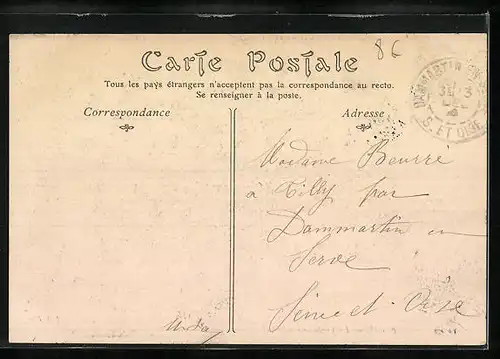 86
Carte Postale
Tous les pays étrangers n'acceptent pas la correspondance au recto.
Se renseigner à la poste.
Correspondance
Adresse
DAMMARTIN
S. ET OISE
Madame Beurre
à Tilly par
Dammartin en
Serve
Seine et Oise